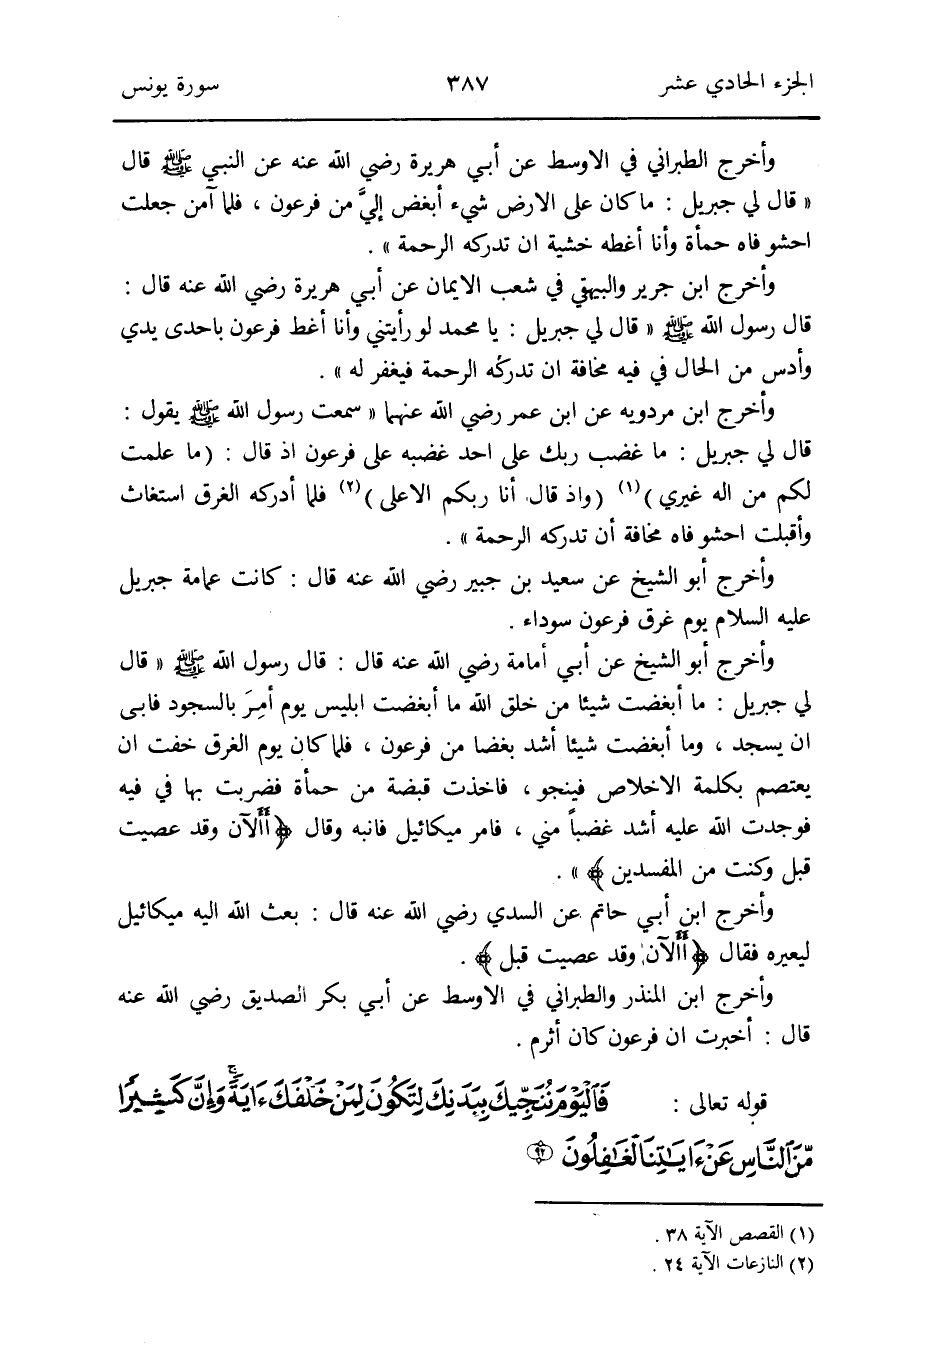 الجزء الحادي عشر ٣٨٧ سورة يونس
وأخرج الطبراني في الاوسط عن أبي هريرة رضي الله عنه عن النبي ﷺ قال
« قال لي جبريل : ما كان على الارض شيء أبغض إليَّ من فرعون ، فلما آمن جعلت
احشو فاه حمأة وأنا أغطه خشية ان تدركه الرحمة » .
وأخرج ابن جرير والبيهقي في شعب الايمان عن أبي هريرة رضي الله عنه قال :
قال رسول الله ﷺ « قال لي جبريل : يا محمد لو رأيتني وأنا أغط فرعون باحدى يدي
وأدس من الحال في فيه مخافة ان تدركه الرحمة فيغفر له » .
وأخرج ابن مردويه عن ابن عمر رضي الله عنهما « سمعت رسول الله ﷺ يقول :
قال لي جبريل : ما غضب ربك على احد غضبه على فرعون اذ قال : (ما علمت
لكم من اله غيري)(١) (واذ قال أنا ربكم الاعلى)(٢) فلما أدركه الغرق استغاث
وأقبلت احشو فاه مخافة أن تدركه الرحمة » .
وأخرج أبو الشيخ عن سعيد بن جبير رضي الله عنه قال : كانت عمامة جبريل
عليه السلام يوم غرق فرعون سوداء .
وأخرج أبو الشيخ عن أبي أمامة رضي الله عنه قال : قال رسول الله ﷺ « قال
لي جبريل : ما أبغضت شيئا من خلق الله ما أبغضت ابليس يوم أمِرَ بالسجود فابى
ان يسجد ، وما أبغضت شيئا أشد بغضا من فرعون ، فلما كان يوم الغرق خفت ان
يعتصم بكلمة الاخلاص فينجو ، فاخذت قبضة من حمأة فضربت بها في فيه
فوجدت الله عليه أشد غضباً مني ، فامر ميكائيل فانبه وقال ﴿أألآن وقد عصيت
قبل وكنت من المفسدين﴾ » .
وأخرج ابن أبي حاتم عن السدي رضي الله عنه قال : بعث الله اليه ميكائيل
ليعيره فقال ﴿أألآن وقد عصيت قبل﴾ .
وأخرج ابن المنذر والطبراني في الاوسط عن أبي بكر الصديق رضي الله عنه
قال : أخبرت ان فرعون كان أثرم .
قوله تعالى : فَٱلْيَوْمَ نُنَجِّيكَ بِبَدَنِكَ لِتَكُونَ لِمَنْ خَلْفَكَ ءَايَةً ۚ وَإِنَّ كَثِيرًا
مِّنَ ٱلنَّاسِ عَنْ ءَايَٰتِنَا لَغَٰفِلُونَ ٩٢
(١) القصص الآية ٣٨ .
(٢) النازعات الآية ٢٤ .